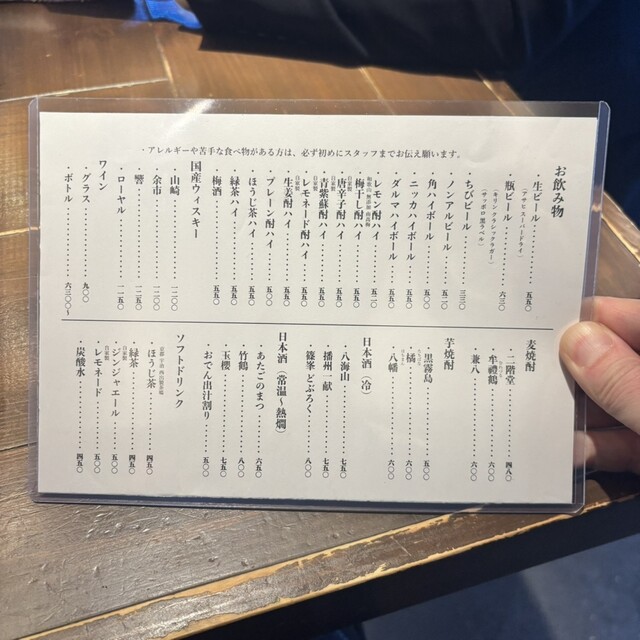 お飲み物
・生ビール・・・・・・・・五五〇
(アサヒスーパードライ)
・瓶ビール・・・・・・・・六三〇
(キリン クラシックラガー)
(サッポロ 黒ラベル)
・ちびビール・・・・・・・三三〇
・ノンアルビール・・・・・四五〇
・角ハイボール・・・・・・五二〇
・ニッカハイボール・・・・五五〇
・ダルマハイボール・・・・五五〇
・レモン酎ハイ・・・・・・五二〇
・梅干し酎ハイ・・・・・・五五〇
・唐辛子酎ハイ・・・・・・五五〇
自家製
・青紫蘇酎ハイ・・・・・・五五〇
自家製
・レモネード酎ハイ・・・・五五〇
自家製
・生姜酎ハイ・・・・・・・五五〇
自家製
・プレーン酎ハイ・・・・・五〇〇
・ほうじ茶ハイ・・・・・・五五〇
・緑茶ハイ・・・・・・・・五五〇
・梅酒・・・・・・・・・・五五〇
国産ウィスキー
・山崎・・・・・・・・一二〇〇
・余市・・・・・・・・一二〇〇
・響・・・・・・・・・一二五〇
・ローヤル・・・・・・一一五〇
ワイン
・グラス・・・・・・・九〇〇
・ボトル・・・・・・・六三〇〇〜
・アレルギーや苦手な食べ物がある方は、必ず初めにスタッフまでお伝え願います。
麦焼酎
・二階堂・・・・・・・・四八〇
・牟禮鶴・・・・・・・・六〇〇
・兼八・・・・・・・・・六〇〇
芋焼酎
・黒霧島・・・・・・・・五〇〇
・橘・・・・・・・・・・六〇〇
・八幡・・・・・・・・・六〇〇
日本酒(冷)
・八海山・・・・・・・・七五〇
・播州一献・・・・・・・七五〇
・篠峯 どぶろく・・・・・八〇〇
日本酒(常温〜熱燗)
・あたごのまつ・・・・・六五〇
・竹鶴・・・・・・・・・八〇〇
・玉櫻・・・・・・・・・七五〇
・おでん出汁割り・・・・五五〇
ソフトドリンク
・ほうじ茶・・・・・・・四五〇
・緑茶・・・・・・・・・四五〇
・ジンジャエール・・・・五〇〇
自家製
・レモネード・・・・・・五〇〇
自家製
・炭酸水・・・・・・・・四五〇